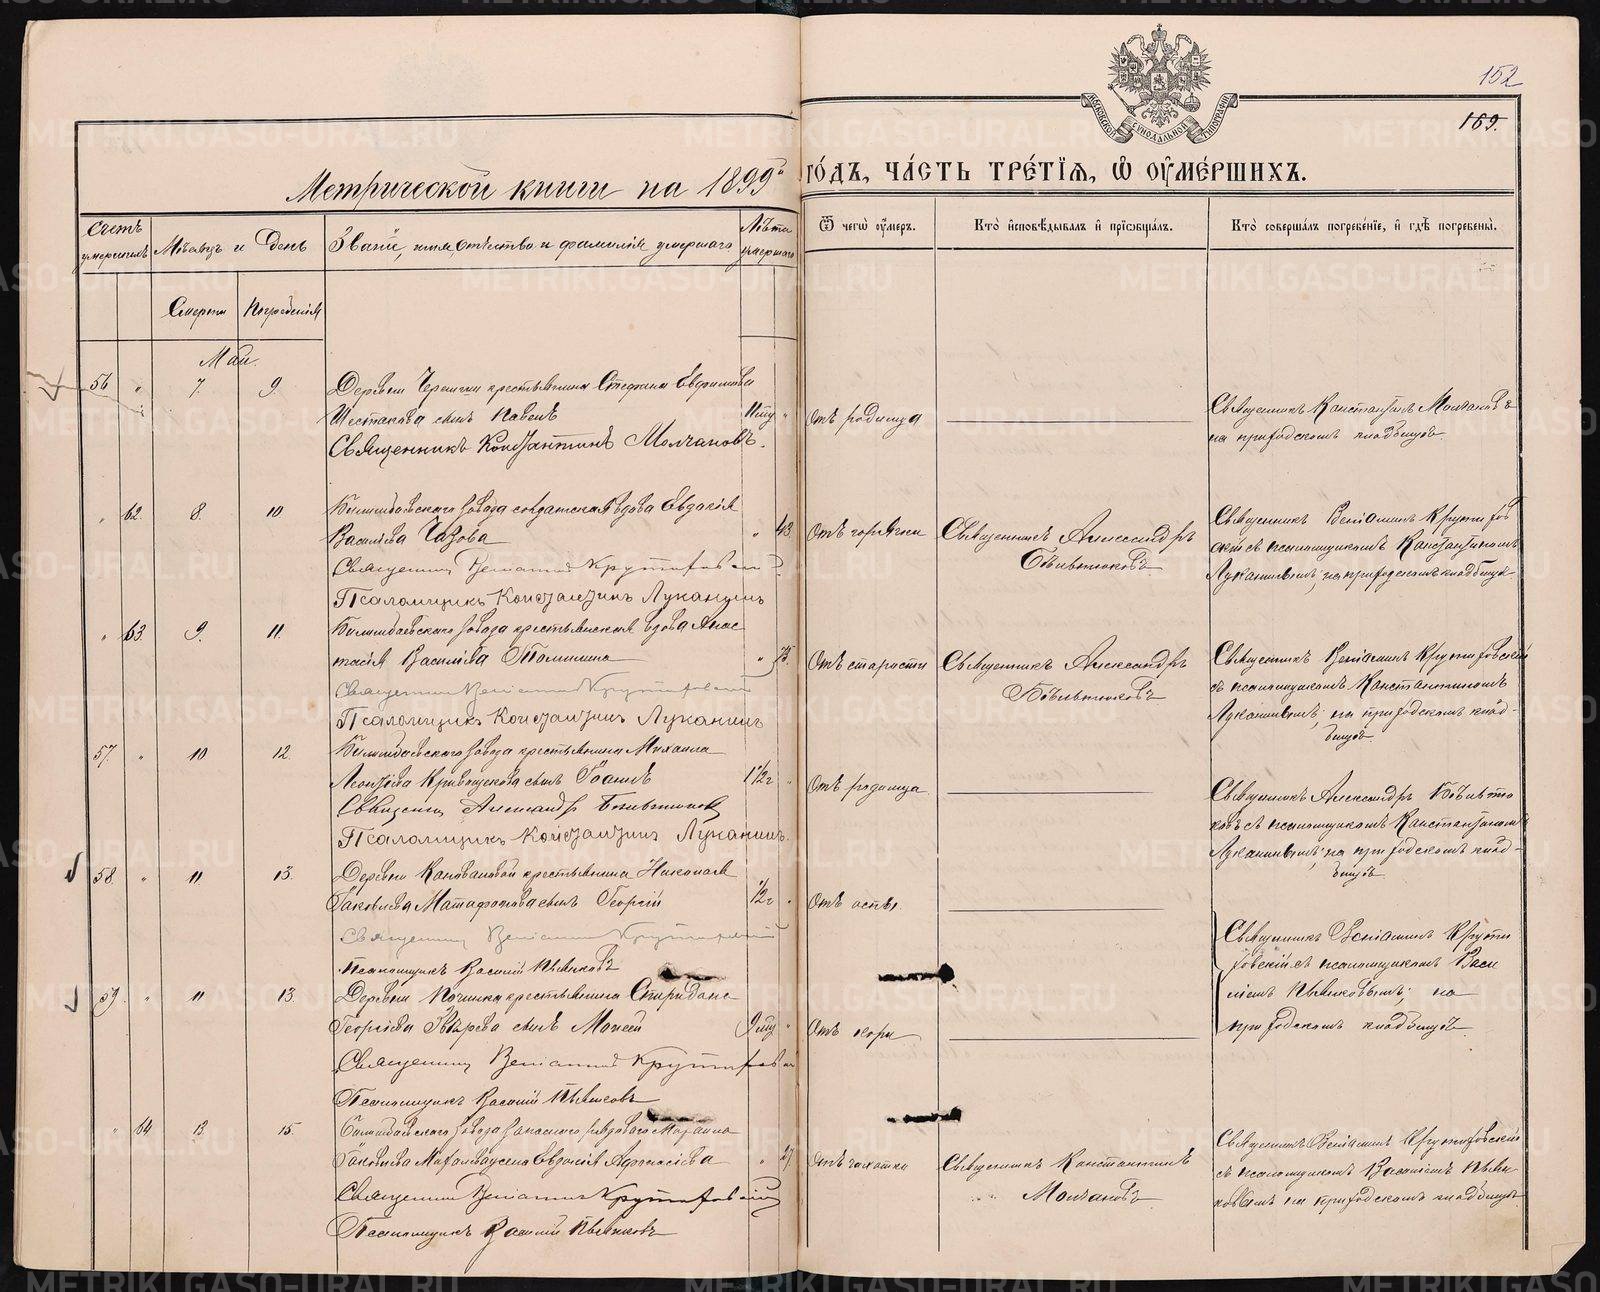 152
169.
МОСКОВСКОЙ СѴНОДАЛЬНОЙ ТИПОГРАФІИ
Метрической книги на 1899й
ГО́ДЪ, ЧА́СТЬ ТРЕ́ТІѦ, Ѡ҆ ОУ҆МЕ́РШИХЪ.
Счетъ умершихъ
Мѣсяцъ и день
Званіе, имя, отчество и фамилія умершаго
Лѣта умершаго
Ѿ чегѡ̀ оу҆́меръ.
Кто̀ и҆сповѣ́дывалъ и҆ прїѡбща́лъ.
Кто̀ соверша́лъ погребе́нїе, и҆ гдѣ̀ погребены̀.
Смерти
Погребенія
Май.
56 " 7. 9.
Деревни крестьянина Стефана Евфимова
Шестакова сынъ Павелъ
Священникъ Константинъ Молчановъ.
Отъ родимца
Священникъ Константинъ Молчановъ
на приходскомъ кладбищѣ.
" 62. 8. 10
Билимбаевскаго завода солдатская вдова Евдокія
Васильева
" 43.
Священникъ Веніаминъ Крутиховскій
Псаломщикъ Константинъ Луканинъ
Отъ горячки
Священникъ Александръ
Священникъ Веніаминъ Крутихов
скій съ псаломщикомъ Константиномъ
Луканинымъ; на приходскомъ кладбищѣ
" 63. 9. 11.
Билимбаевскаго завода крестьянская вдова Анас
тасія Васильева Топилина
" 75.
Священникъ Веніаминъ Крутиховскій
Псаломщикъ Константинъ Луканинъ
Отъ старости
Священникъ Александръ
Священникъ Веніаминъ Крутиховскій
съ псаломщикомъ Константиномъ
Луканинымъ; на приходскомъ клад-
бищѣ
57. " 10 12.
Билимбаевскаго завода крестьянина Михаила
Леонтьева Кривощекова сынъ Іоаннъ
1 1/2 г "
Священникъ Александръ
Псаломщикъ Константинъ Луканинъ.
Отъ родимца
Священникъ Александръ
съ псаломщикомъ Константиномъ
Луканинымъ; на приходскомъ клад-
бищѣ
58. " 11. 13.
Деревни Коноваловой крестьянина Николая
Іаковлева сынъ Георгій
1/2 г "
Священникъ Веніаминъ Крутиховскій
Псаломщикъ Василій Пьянковъ
Отъ оспы.
Священникъ Веніаминъ Крути
ховскій съ псаломщикомъ Васи
ліемъ Пьянковымъ; на
приходскомъ кладбищѣ.
59. " 11 13.
Деревни Починка крестьянина Спиридона
Георгіева Звѣрева сынъ Моисей
9 мц "
Священникъ Веніаминъ Крутиховскій
Псаломщикъ Василій Пьянковъ
Отъ кори
" 64 13 15.
Билимбаевскаго завода запаснаго рядового
Іаковлева жена Евдокія Афанасіева
" 27
Священникъ Веніаминъ Крутиховскій
Псаломщикъ Василій Пьянковъ
Отъ чахотки
Священникъ Константинъ
Молчановъ
Священникъ Веніаминъ Крутиховскій
съ псаломщикомъ Василіемъ Пьян
ковымъ на приходскомъ кладбищѣ
METRIKI.GASO-URAL.RU